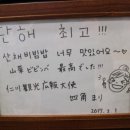 단해 최고!!!
산채비빔밥 너무 맛있어요~♡
山菜ビビンバ 最高でした!!!
仁川観光広報大使
四角まり
2017. 2. 1